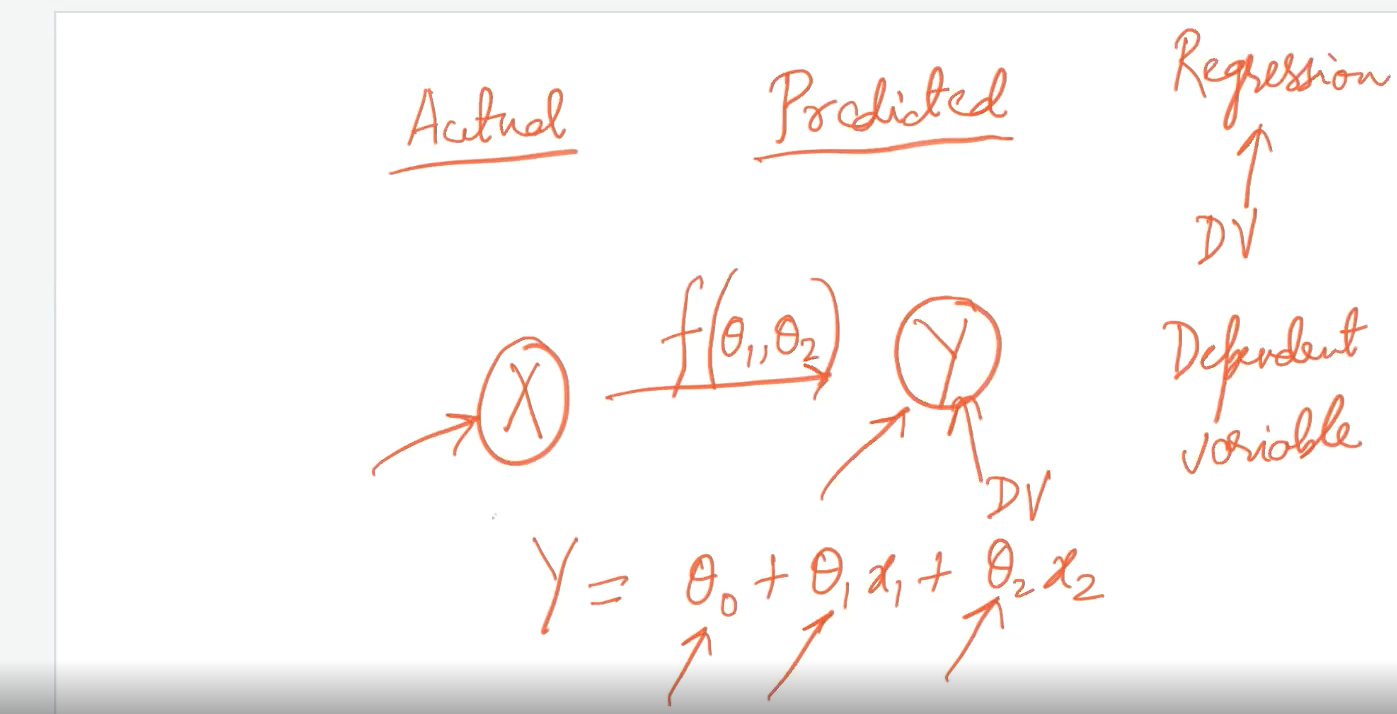 Actual
Predicted
Regression
DV
f(θ₁,,θ₂)
X
Y
Dependent
variable
DV
Y = θ₀ + θ₁ x₁ + θ₂ x₂